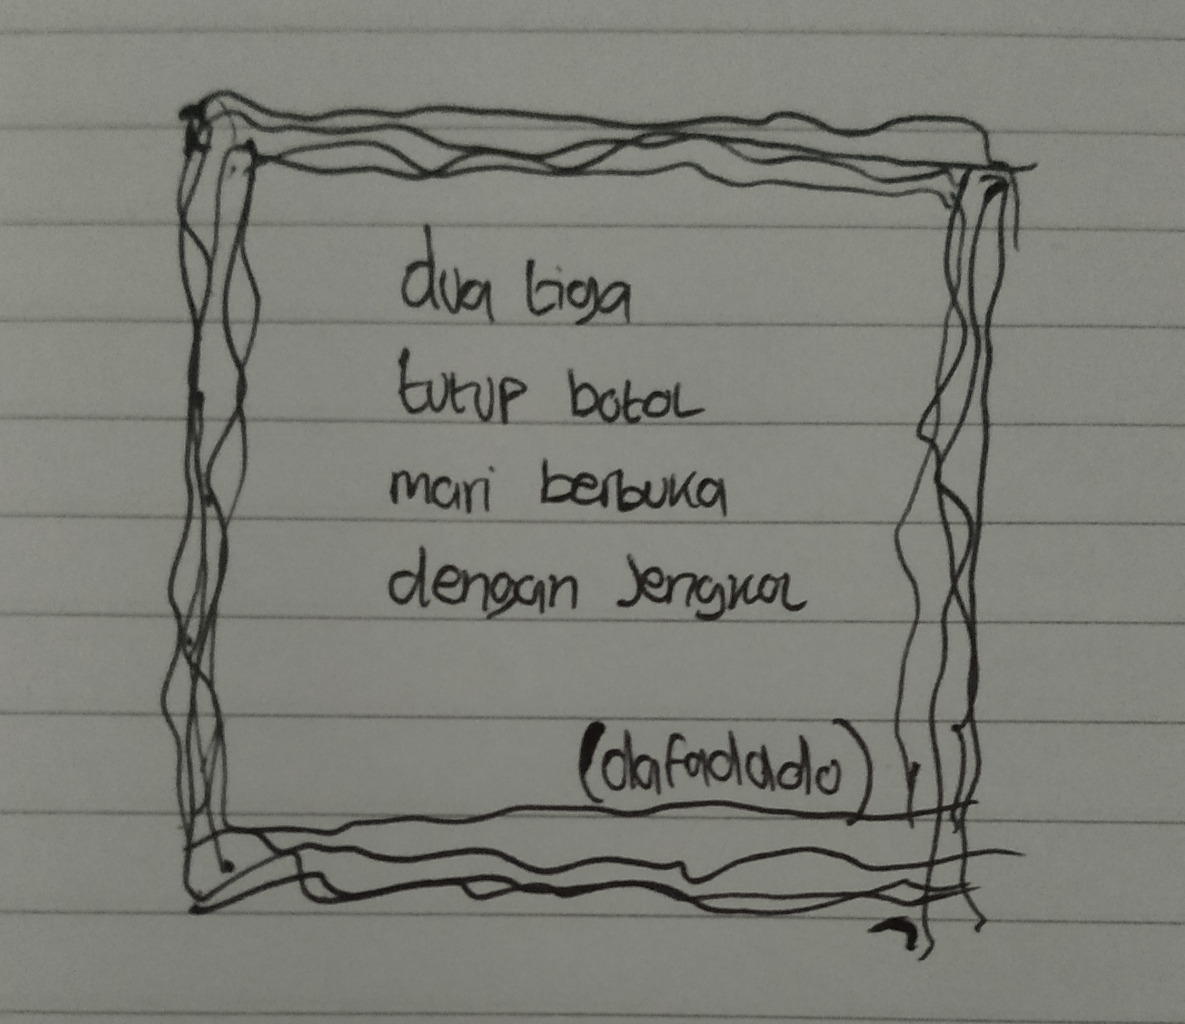 dua tiga
tutup botol
mari berbuka
dengan Jengkol
(dafadado)